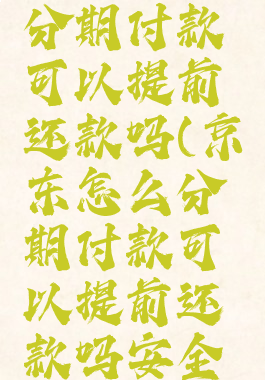 分期付款
可以提前
还款吗(京
东怎么分
期付款可
以提前还
款吗安全